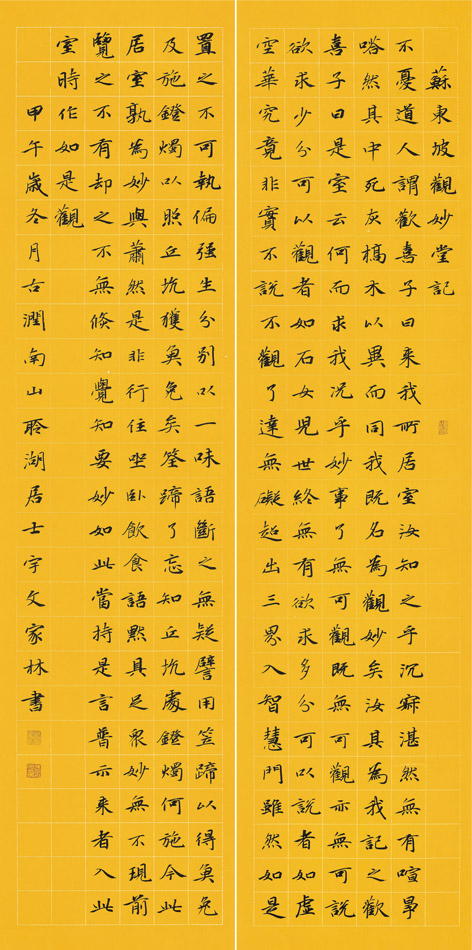 蘇東坡觀妙堂記
不憂道人謂歡喜子曰来我所居室汝知之乎沉寂湛然無有喧爭
嗒然其中死灰槁木以異而同我既名為觀妙矣汝其為我記之歡
喜子曰是室云何而求我況乎妙事了無可觀既無可觀亦無可說
欲求少分可以觀者如石女兒世終無有欲求多分可以說者如虛
空華究竟非實不說不觀了達無礙超出三界入智慧門雖然如是
置之不可執偏强生分别以一味語斷之無疑譬用筌蹄以得魚兔
及施鐙燭以照丘坑獲魚兔矣筌蹄了忘知丘坑處鐙燭何施今此
居室孰為妙與蕭然是非行住坐卧飲食語默具足衆妙無不現前
覽之不有却之不無倏知覺知要妙如此當持是言普示来者入此
室時作如是觀
甲午歲冬月古潤南山聆湖居士宇文家林書